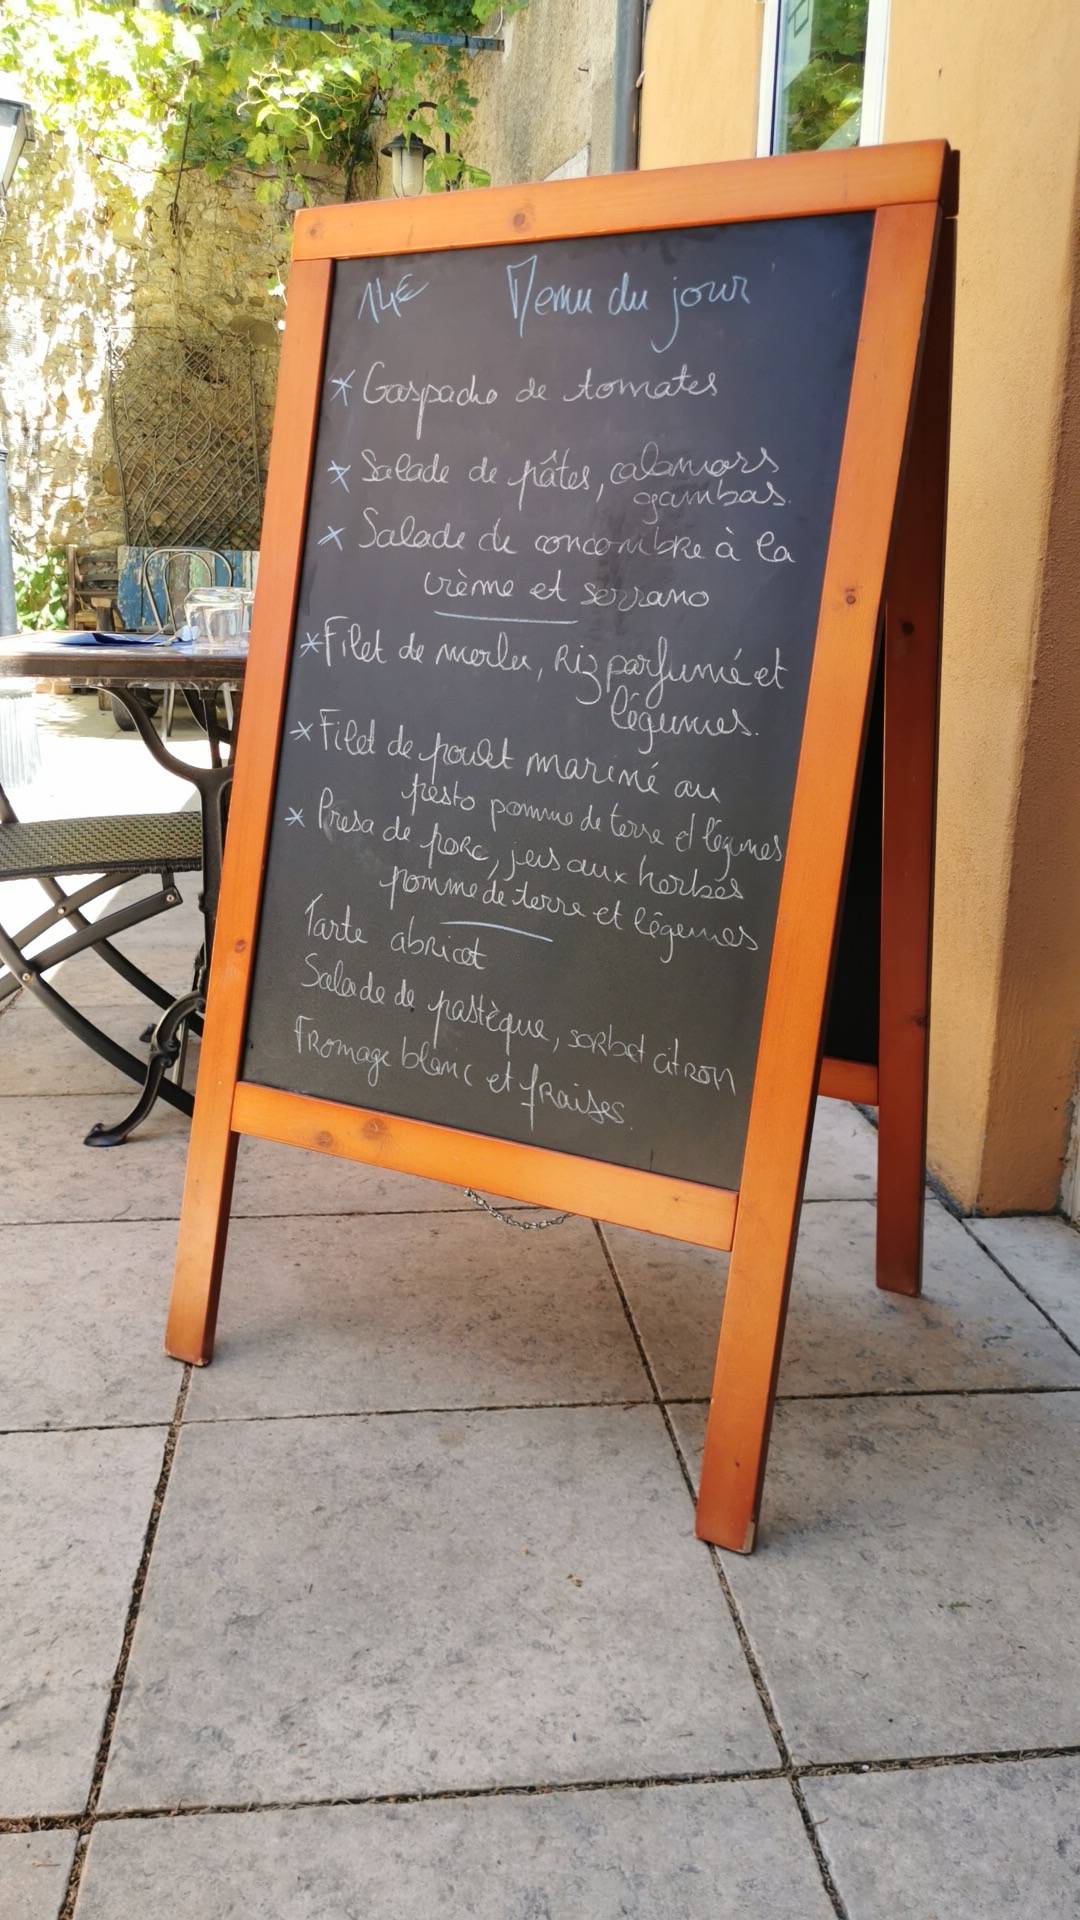 14€ Menu du jour
* Gaspacho de tomates
* Salade de pâtes, calamars
gambas.
* Salade de concombre à la
crème et serrano
* Filet de merlu, Riz parfumé et
légumes.
* Filet de poulet mariné au
pesto pomme de terre et légumes
* Presa de porc, jus aux herbes
pomme de terre et légumes
Tarte abricot
Salade de pastèque, sorbet citron
Fromage blanc et fraises.